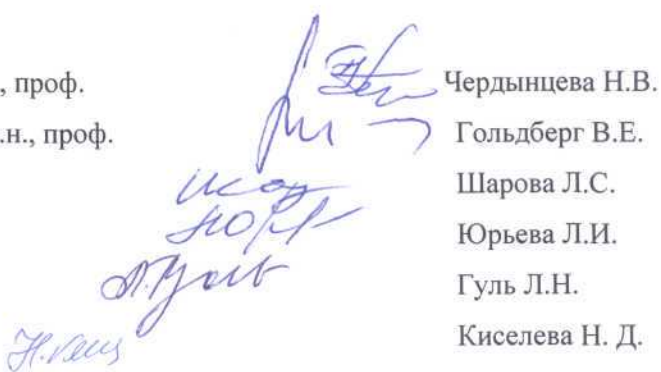 , проф. Чердынцева Н.В.
.н., проф. Гольдберг В.Е.
Шарова Л.С.
Юрьева Л.И.
Гуль Л.Н.
Киселева Н. Д.